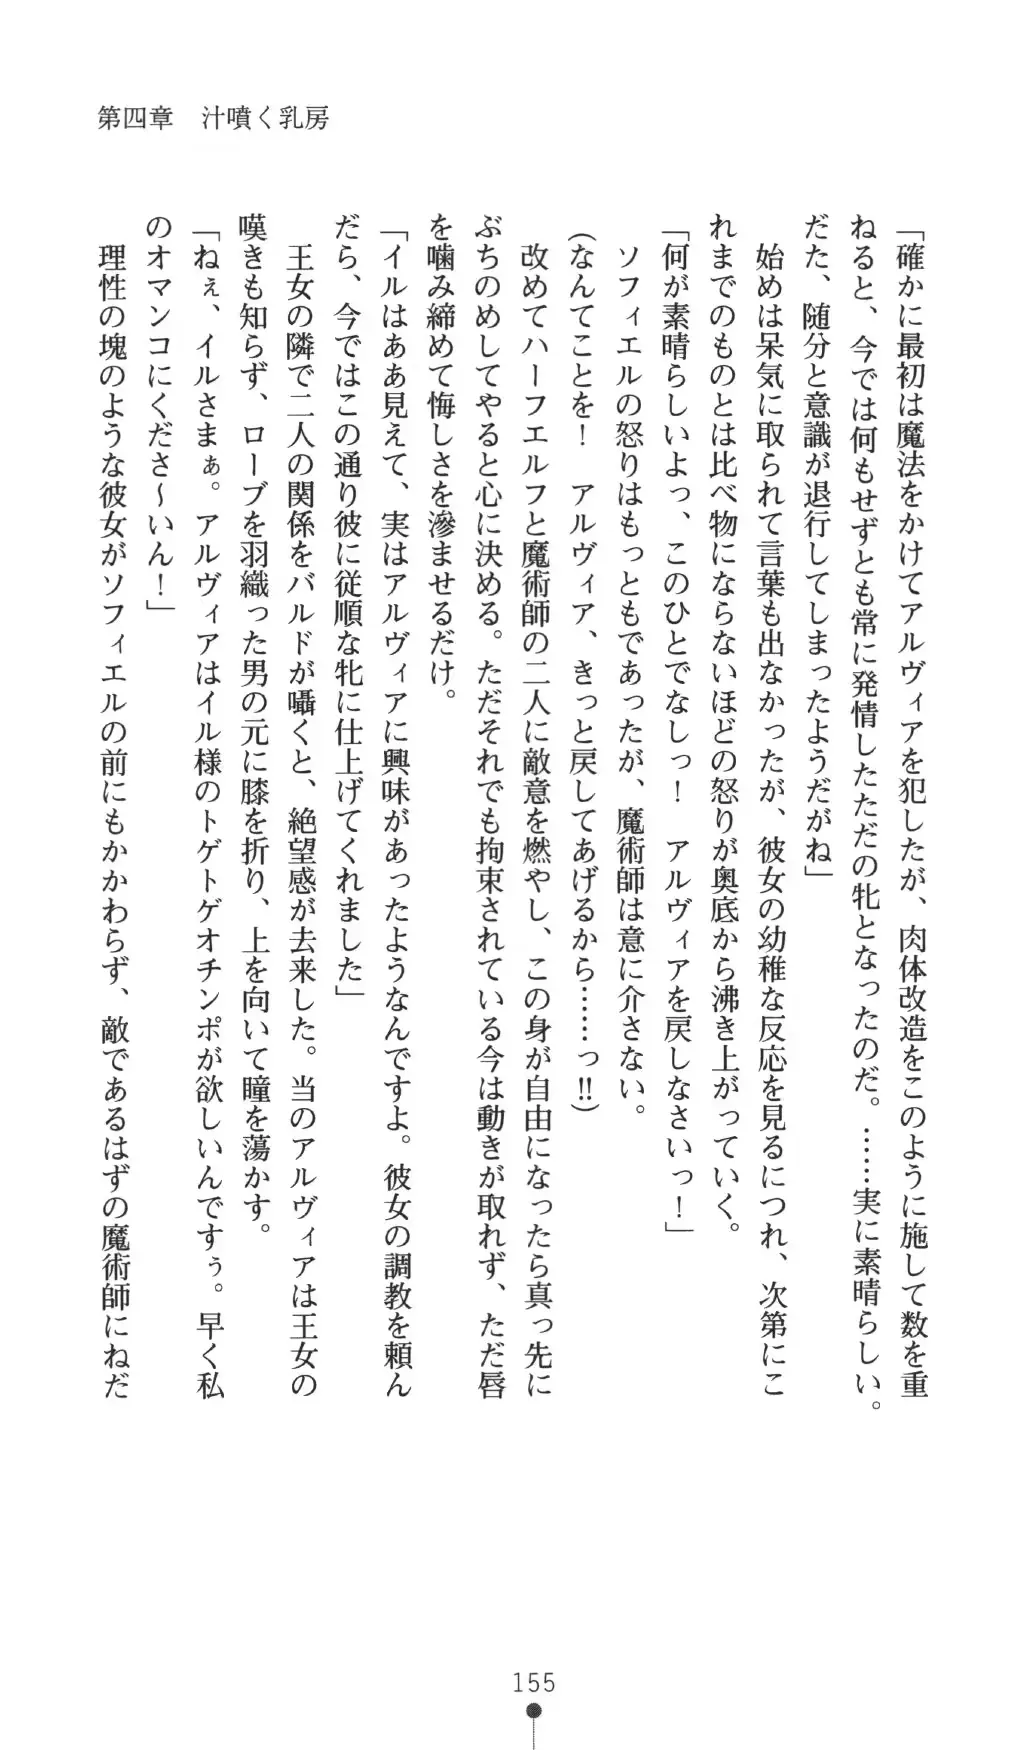 第四章　汁噴く乳房
「確かに最初は魔法をかけてアルヴィアを犯したが、肉体改造をこのように施して数を重
ねると、今では何もせずとも常に発情したただの牝となったのだ。……実に素晴らしい。
だた、随分と意識が退行してしまったようだがね」
　始めは呆気に取られて言葉も出なかったが、彼女の幼稚な反応を見るにつれ、次第にこ
れまでのものとは比べ物にならないほどの怒りが奥底から沸き上がっていく。
「何が素晴らしいよっ、このひとでなしっ！　アルヴィアを戻しなさいっ！」
　ソフィエルの怒りはもっともであったが、魔術師は意に介さない。
（なんてことを！　アルヴィア、きっと戻してあげるから……っ!!）
　改めてハーフエルフと魔術師の二人に敵意を燃やし、この身が自由になったら真っ先に
ぶちのめしてやると心に決める。ただそれでも拘束されている今は動きが取れず、ただ唇
を噛み締めて悔しさを滲ませるだけ。
「イルはああ見えて、実はアルヴィアに興味があったようなんですよ。彼女の調教を頼ん
だら、今ではこの通り彼に従順な牝に仕上げてくれました」
　王女の隣で二人の関係をバルドが囁くと、絶望感が去来した。当のアルヴィアは王女の
嘆きも知らず、ローブを羽織った男の元に膝を折り、上を向いて瞳を蕩かす。
「ねぇ、イルさまぁ。アルヴィアはイル様のトゲトゲオチンポが欲しいんですぅ。早く私
のオマンコにくださ〜いん！」
　理性の塊のような彼女がソフィエルの前にもかかわらず、敵であるはずの魔術師にねだ
155